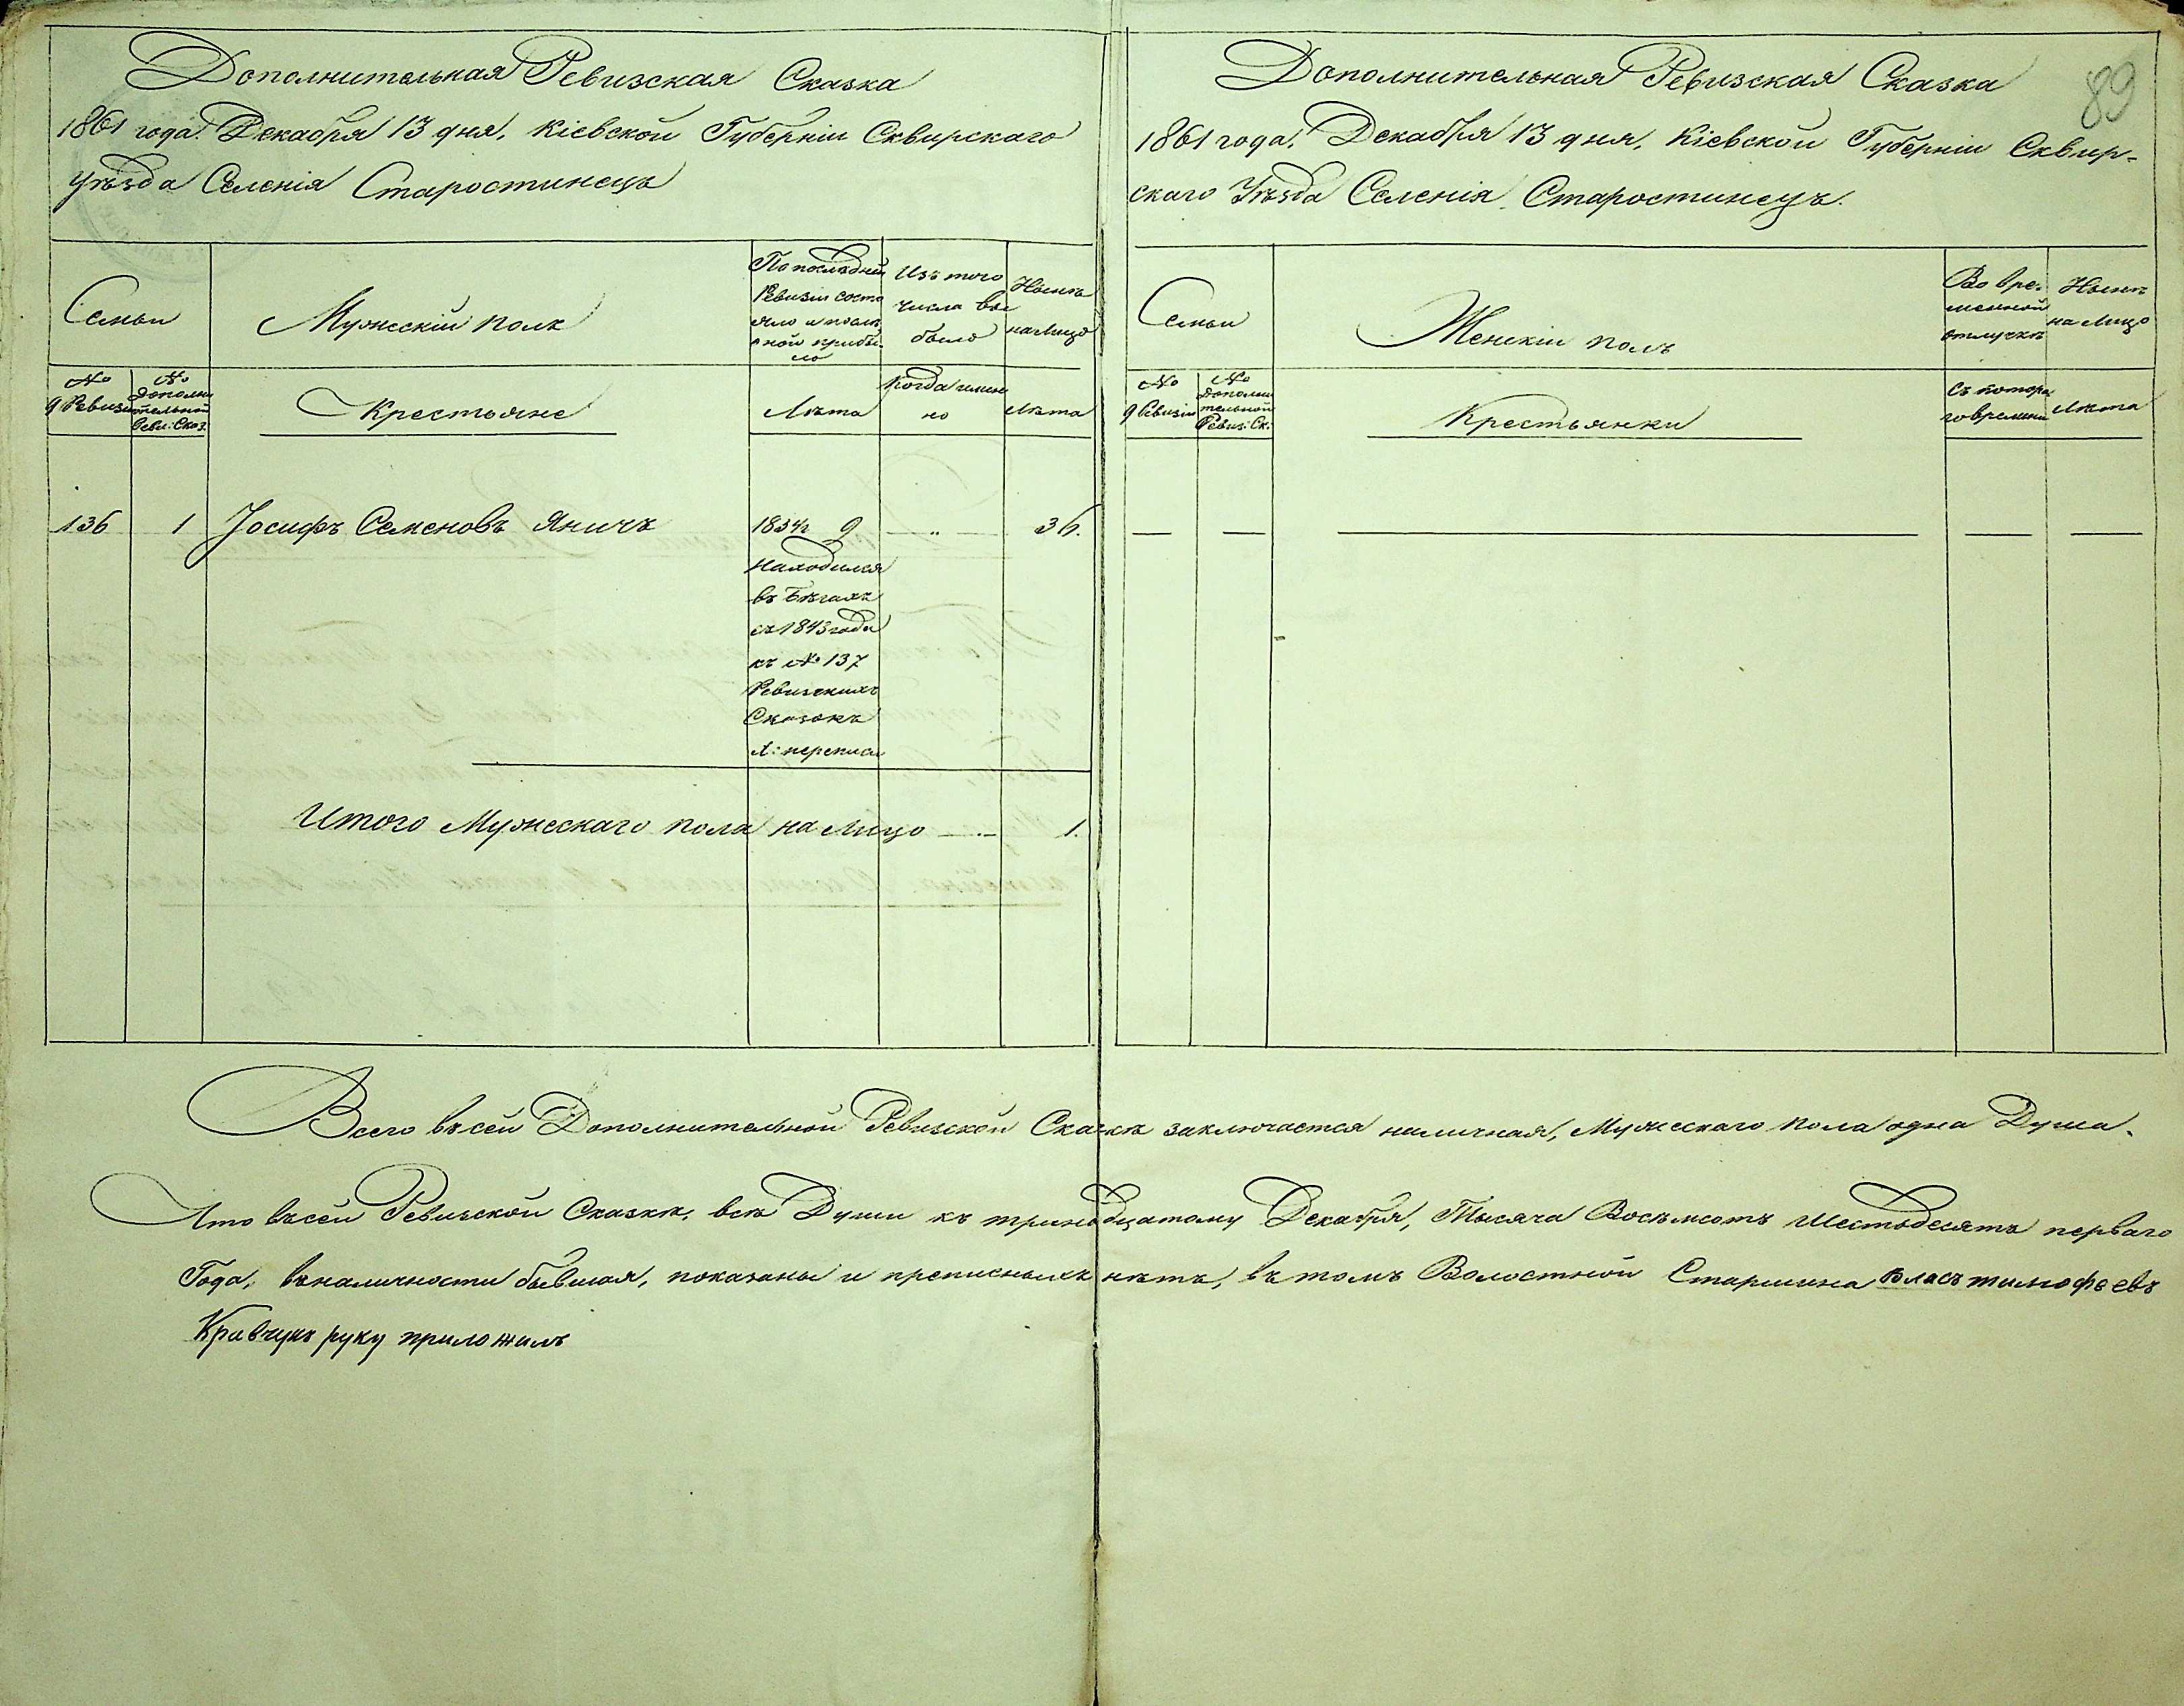 Дополнительная Ревизская Сказка
1861 года. Декабря 13 дня, Кіевской Губерніи Сквирскаго
Уѣзда Селенія Старостинецъ
Семьи
Мужескій полъ
По послѣдней
Ревизіи состо
яло и посл
ѣ оной прибы
ло
Изъ того
числа вы
было
Нынѣ
на лицо
№
9 Ревизіи
№
Дополни
тельной
Реви: Сказ.
Крестьяне
Лѣта
Когда имен
но
Лѣта
136 1 Іосифъ Семеновъ Яничъ 1834 9 — „ — 36.
Находился
въ Бѣгахъ
съ 1843 года
къ № 137
Ревизскихъ
Сказокъ
переписи
Итого Мужескаго пола на лицо — 1.
Дополнительная Ревизская Сказка
89
1861 года, Декабря 13 дня, Кіевской Губерніи Сквир-
скаго Уѣзда Селенія Старостинецъ.
Семьи
Женскій полъ
Во вре-
менной
отлучкѣ
Нынѣ
на лицо
№
9 Ревизіи
№
Дополни
тельной
Ревиз: Ск:
Крестьянки
Съ котора
го времени
Лѣта
— — — — —
Всего въ сей Дополнительной Ревизской Сказкѣ заключается наличная, Мужескаго пола одна Душа.
Что въ сей Ревизской Сказкѣ, всѣ Души къ тринадцатому Декабря, Тысяча Восемьсотъ Шестьдесятъ перваго
Года, въ наличности бывшая, показаны и прописныхъ нѣтъ, въ томъ Волостной Старшина Власъ тимофѣевъ
Кравчукъ руку приложилъ